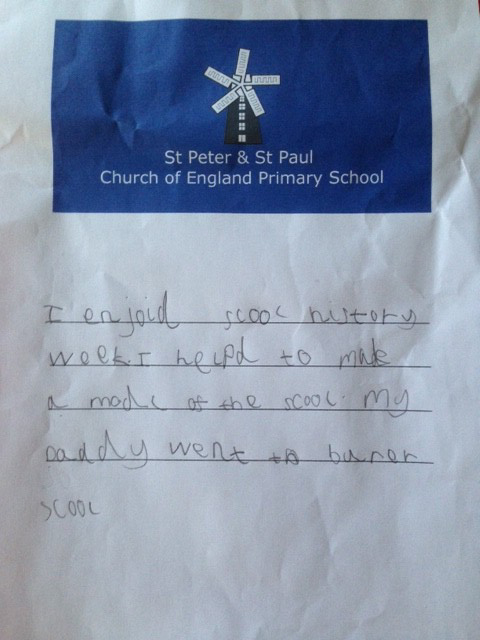 St Peter & St Paul
Church of England Primary School
I enjoid scool history
week. I helpd to make
a modl of the scool. My
daddy went to
scool